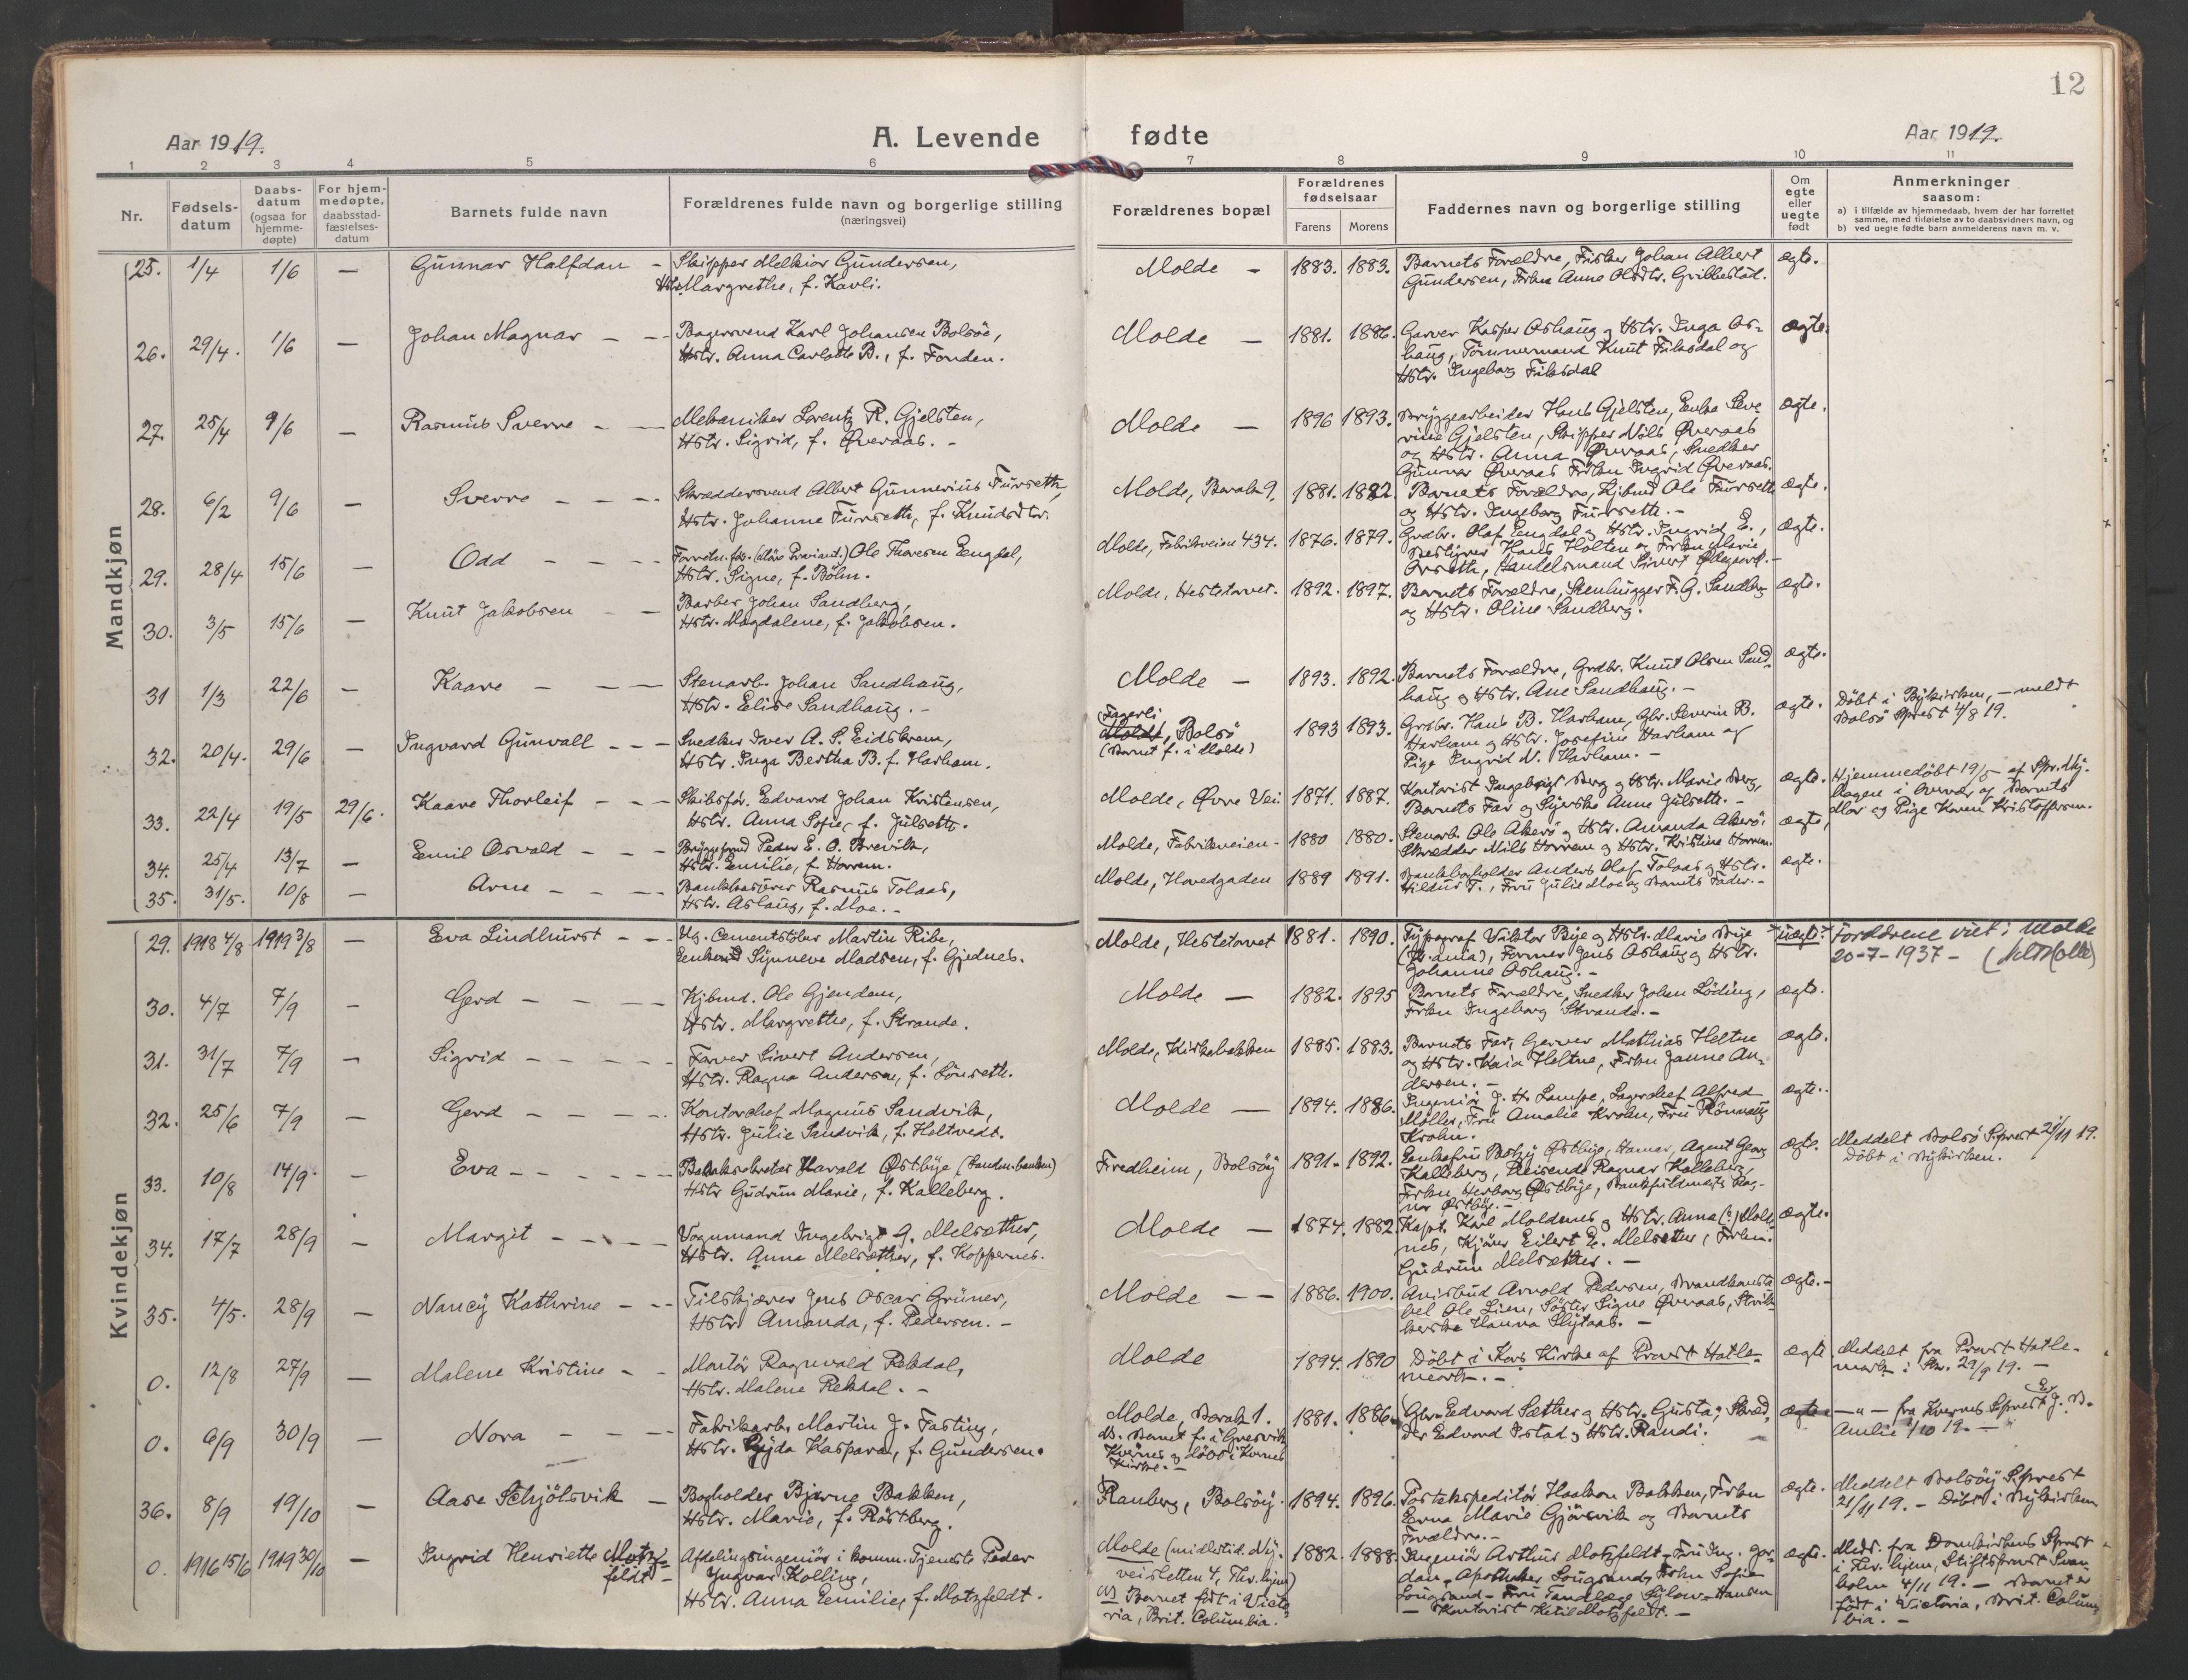 12
Aar 1919.
A. Levende fødte
Aar 1919.
1 2 3 4 5 6 7 8 9 10 11
Nr.
Fødsels-
datum
Daabs-
datum
(ogsaa for
hjemme-
døpte)
For hjem-
medøpte,
daabsstad-
fæstelses-
datum
Barnets fulde navn
Forældrenes fulde navn og borgerlige stilling
(næringsvei)
Forældrenes bopæl
Forældrenes
fødselsaar
Farens Morens
Faddernes navn og borgerlige stilling
Om
egte
eller
uegte
født
Anmerkninger
saasom:
a) i tilfælde av hjemmedaab, hvem der har forrettet
samme, med tilføielse av to daabsvidners navn, og
b) ved uegte fødte barn anmelderens navn m. v.
Mandkjøn
25. 1/4 1/6 — Gunnar Halfdan — Skipper Melkior Gundersen,
Hstr. Margrethe, f. Kavli.
Molde — 1883. 1883. Barnets Forældre, Fisker Johan Albert
Gundersen, Frkn Anne Olsdtr. Gribbestad.
ægte.
26. 29/4. 1/6 — Johan Magnar — — Bagersvend Karl Johansen Bolsöe,
Hstr. Anna Carlotte B., f. Fonden.
Molde — 1881. 1886. Garver Kasper Oshaug og Hstr. Inga Os-
haug, Tömmermand Knut Friksdal og
Hstr. Ingeborg Friksdal
ægte.
27. 25/4 9/6 — Rasmus Sverre — — Mekaniker Lorentz R. Gjelsten,
Hstr. Sigrid, f. Øveraas. —
Molde — 1896 1893. Bryggearbeider Hans Gjelsten, Enke Seve
rine Gjelsten, Skipper Nils Øveraas
og Hstr. Anna Øveraas, Snedker
Gunnar Øveraas Frkn Ingrid Øveraas.
ægte.
28. 6/2 9/6 — Sverre — — — Skræddersvend Albert Gunnerius Fursette,
Hstr. Johanne Fursette, f. Knudsdtr.
Molde, Barak 9. 1881. 1882. Barnets Forældre, Kjbmd Ole Fursette
og Hstr. Ingeborg Fursette. —
ægte.
29. 28/4 15/6 — Odd — — — Ole Thoresen Engdal,
Hstr. Signe, f. Böhn.
Molde, Fabrikveien 434. 1876. 1879. Grdbr. Olaf Engdal og Hstr. Ingrid E.,
Bestyrer Hans Holten og Frkn Marie
Orsette, Handelsmand Sivert Ødegaard. —
ægte.
30. 3/5 15/6 — Knut Jakobsen — — Barber Johan Sandberg,
Hstr. Magdalene, f. Jakobsen.
Molde, Hestetorvet. 1892. 1897. Barnets Forældre, Stenhugger F. G. Sandberg
og Hstr. Oline Sandberg.
ægte.
31 1/3 22/6 — Kaare — — — Stenarb. Johan Sandhaug,
Hstr. Elise Sandhaug. —
Molde — 1893. 1892. Barnets Forældre, Grdbr. Knut Olsen Sand-
haug og Hstr. Ane Sandhaug. —
ægte.
32. 20/4. 29/6 — Ingvard Gunvall — — — Snedker Iver A. S. Eidskrem,
Hstr. Inga Bertha B. f. Harham.
Fagerli
Molde, Bolsö
(Barnet f. i Molde)
1893 1893. Grdbr. Hans B. Harham, Gbr. Severin B.
Harham og Hstr. Josefine Harham og
Pige Ingrid N. Harham. —
ægte. Döbt i Bykirken, — meldt
Bolsö Sprest 4/8 19.
33. 22/4 19/5 29/6. Kaare Thorleif — — — Skibsför. Edvard Johan Kristensen,
Hstr. Anna Sofie, f. Julsette.
Molde, Øvre Vei 1871. 1887. Kontorist Ingebrigt Berg og Hstr. Marie Berg,
Barnets Far og Syerske Anne Julsette. —
ægte. Hjemmedöbt 19/5 af Spr. My-
hagen i Overvær af Barnets
Mor og Pige Karen Kristoffersen.
34. 25/4 13/7 — Emil Osvald — — — Bryggeformd Peder E. O. Brevik,
Hstr. Emilie, f. Horrem.
Molde, Fabrikveien - 1880 1880. Stenarb. Ole Akerö og Hstr. Amanda Akerö.
Skrædder Nils Horrem og Hstr. Kristine Horrem.
ægte,
35. 31/5. 10/8 — Arne — — — Bankkasserer Rasmus Tolaas,
Hstr. Aslaug, f. Moe. —
Molde, Hovedgaden 1889 1891. Bankbogholder Anders Olaf Tolaas og Hstr.
Hildur T., Fru Julie Moe og Barnets Fader. —
ægte.
Kvindekjøn
29. 1918 4/8 1919 3/8 — Eva Lindhurst — — Ug. Cementstöber Martin Ribe,
Enken Synneve Madsen, f. Gjednes.
Molde, Hestetorvet 1881. 1890. Typograf Viktor Bye og Hstr. Marie Bye
(Kr.ania), Former Jens Oshaug og Hstr.
Johanne Oshaug. —
uegte. Forældrene viet i Molde
20-7-1937 —
30. 4/7 7/9 — Gerd — — — Kjbmd. Ole Gjendem,
Hstr. Margrethe, f. Strande.
Molde — 1882. 1895 Barnets Forældre, Snedker Johan Löding,
Frkn Ingeborg Strande. —
ægte.
31. 31/7 7/9 — Sigrid — — — — Farver Sivert Andersen,
Hstr. Ragna Andersen, f. Lönsette.
Molde, Kirkebakken 1885. 1883. Barnets Far, Garver Mathias Heltne
og Hstr. Kaia Heltne, Frkn Janne An-
dersen. —
ægte.
32. 25/6 7/9 — Gerd — — — Kontorchef Magnus Sandvik,
Hstr. Julie Sandvik, f. Holtvedt.
Molde — 1894. 1886. Ingeniör J. H. Lampe, Lagerchef Alfred
Möller, Fru Amalie Krohn, Fru Rönnaug
Krohn.
ægte.
33. 10/8 14/9. — Eva — — — — Banksekretær Harald Østbye (Sandens banken)
Hstr Gudrun Marie, f. Kalleberg.
Fredheim, Bolsöy 1891. 1892. Enkefru Østbye, Hamar, Agent Georg
Kalleberg, Reisende Ragnar Kalleberg,
Frkn Herborg Østbye, Bankfuldmægtig Rag-
nar Østbye. —
ægte. Meddelt Bolsö Sprest 21/11 19.
Döbt i Bykirken.
34. 17/7 28/9 — Margit — — — — Vognmand Ingebrigt G. Melsæther,
Hstr. Anna Melsæther, f. Koppernes.
Molde — 1874. 1882. Kapt. Karl Moldenes og Hstr. Anna (?) Molde-
nes, Kjörer Eilert E. Melsæther, Frkn.
Gudrun Melsæther. —
ægte.
35. 4/5. 28/9 — Nancy Kathrine — — Tilskjærer Jens Oscar Grüner,
Hstr. Amanda, f. Pedersen. —
Molde — — 1886. 1900. Avisbud Arnold Pedersen, Brandkonsta-
bel Ole Lien, Söster Signe Øveraas, Strik-
kerske Hanna Flytaas. —
ægte. —
0. 12/8 27/9 — Malene Kristine — — Montör Ragnvald Rekdal,
Hstr. Malene Rekdal. —
Molde 1894. 1890 Döbt i Kors Kirke af Provst Hatle-
mark. —
ægte Meddelt fra Provst Hatle-
mark i Skr. 29/9 19. —
0. 6/9 30/9 — Nora — — — Fabrikarb. Martin J. Fasting,
Hstr. Gyda Kaspara, f. Gundersen.
Molde, Barak 1.
NB. Barnet f. i Gresvik
Kvernes og döbt i Kvernes
Kirke. —
1881. 1886. Gbr. Edvard Sæther og Hstr. Gusta; Skræd-
der Edvard Istad og Hstr. Randi.
ægte — " — fra Kvernes Sprest Er. J. B.
Amlie 1/10 19. —
36. 8/9 19/10 — Aase Schjölsvik — Bogholder Bjarne Bakken,
Hstr. Marie, f. Röstberg.
Ranberg, Bolsöy. 1894. 1896. Postekspeditör Haakon Bakken, Frkn
Erna Marie Gjörsvik og Barnets
Forældre. —
ægte. Meddelt Bolsöy Sprest
21/11 19. — Döbt i Bykirken
0. 1916 15/6 1919 30/10 — Ingrid Henriette Motz-
feldt — Afdelingsingeniör i komm. Tjeneste Peder
Yngvar Kolling,
Hstr. Anna Emilie, f. Motzfeldt.
Molde (midlertid. Ny-
veisletten 4, Thr.hjem)
NB Barnet født i Victo-
ria, Brit. Columbia.
1882. 1888. Ingeniör Arthur Motzfeldt — Fru Ing. Jor-
dan — Apotheker Lougsand, Frkn Sofie
Lougsand — Fru Tandlæge Sylow-Hansen
— Kontorist Ketil Motzfeldt. —
ægte. Medd. fra Domkirkens Sprest
i Thr.hjem, Stiftsprovst Svan-
holm 4/11 19. — Barnet er
født i Victoria, Brit. Colum-
bia. —